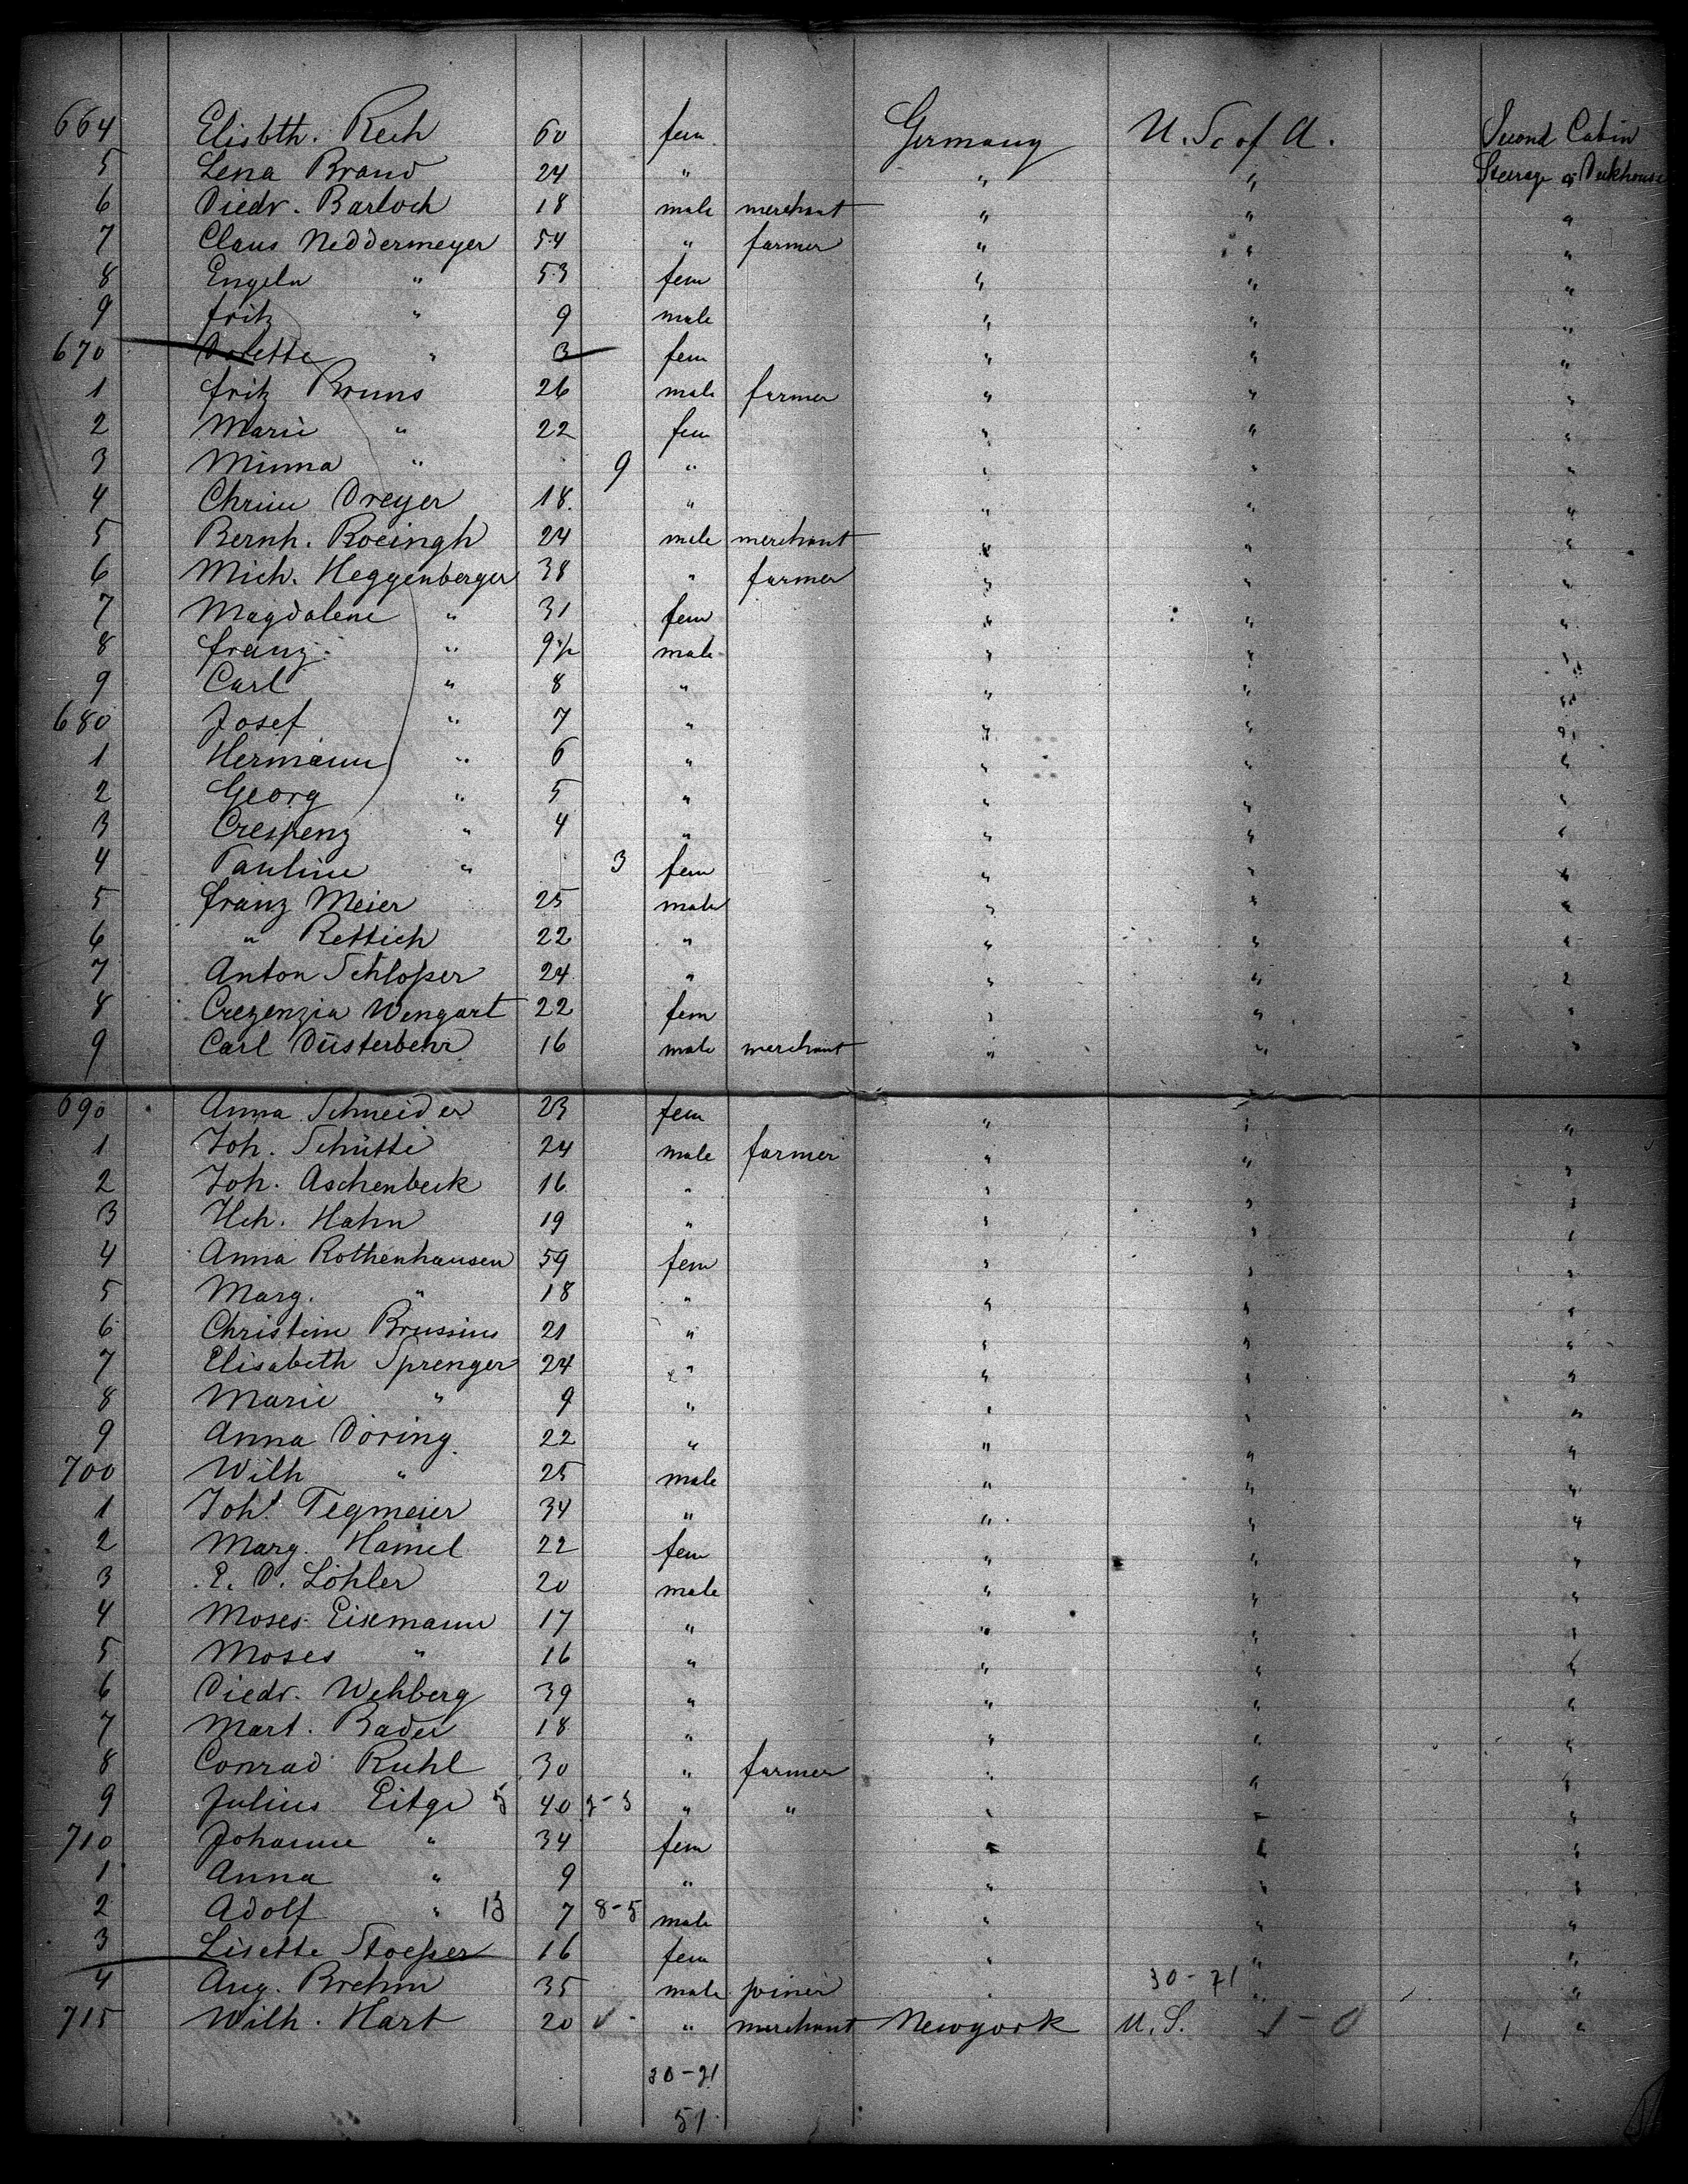 664 Elisbth. Rech 60 fem Germany U. S. of A. Second Cabin
5 Lena Brand 24 " " " Steerage a Deckhouse
6 Diedr. Barloch 18 male merchant " " "
7 Claus Neddermeyer 54 " farmer " " "
8 Engeln " 53 fem " " "
9 Fritz " 9 male " " "
670 Dorette " 3 fem " " "
1 Fritz Bruns 26 male farmer " " "
2 Marie " 22 fem " " "
3 Minna " 9 " " " "
4 Chrine Dreyer 18 " " " "
5 Bernh. Roeingh 24 male merchant " " "
6 Mich. Heggenberger 38 " farmer " " "
7 Magdalene " 31 fem " " "
8 Franz " 9½ male " " "
9 Carl " 8 " " " "
680 Josef " 7 " " " "
1 Hermann " 6 " " " "
2 Georg " 5 " " " "
3 Crespenz " 4 " " " "
4 Pauline " 3 fem " " "
5 Franz Meier 25 male " " "
6 " Rettich 22 " " " "
7 Anton Schloßer 24 " " " "
8 Crezenzia Wengart 22 fem " " "
9 Carl Düsterbehn 16 male merchant " " "
690 Anna Schneider 23 fem " " "
1 Joh. Schütte 24 male farmer " " "
2 Joh. Aschenbeck 16 " " " "
3 Hch. Hahn 19 " " " "
4 Anna Rothenhausen 59 fem " " "
5 Marg. " 18 " " " "
6 Christine Brussius 21 " " " "
7 Elisabeth Sprenger 24 " " " "
8 Marie " 9 " " " "
9 Anna Döring 22 " " " "
700 Wilh " 25 male " " "
1 Joh. Tegmeier 34 " " " "
2 Marg. Hamel 22 fem " " "
3 E. D. Löhler 20 male " " "
4 Moses Eisemann 17 " " " "
5 Moses " 16 " " " "
6 Diedr. Wehberg 39 " " " "
7 Mart. Bader 18 " " " "
8 Conrad Ruhl 30 " farmer " " "
9 Julius Eitge 5 40 " " " " "
710 Johanne " 34 fem " " "
1 Anna " 9 " " " "
2 Adolf " 13 7 8-5 male " " "
3 Lisette Stoeßer 16 fem " " "
4 Aug. Brehm 35 male joiner " 30-21 " "
715 Wilh. Hart 20 " merchant Newyork U.S. 1-0 "
30-21
51